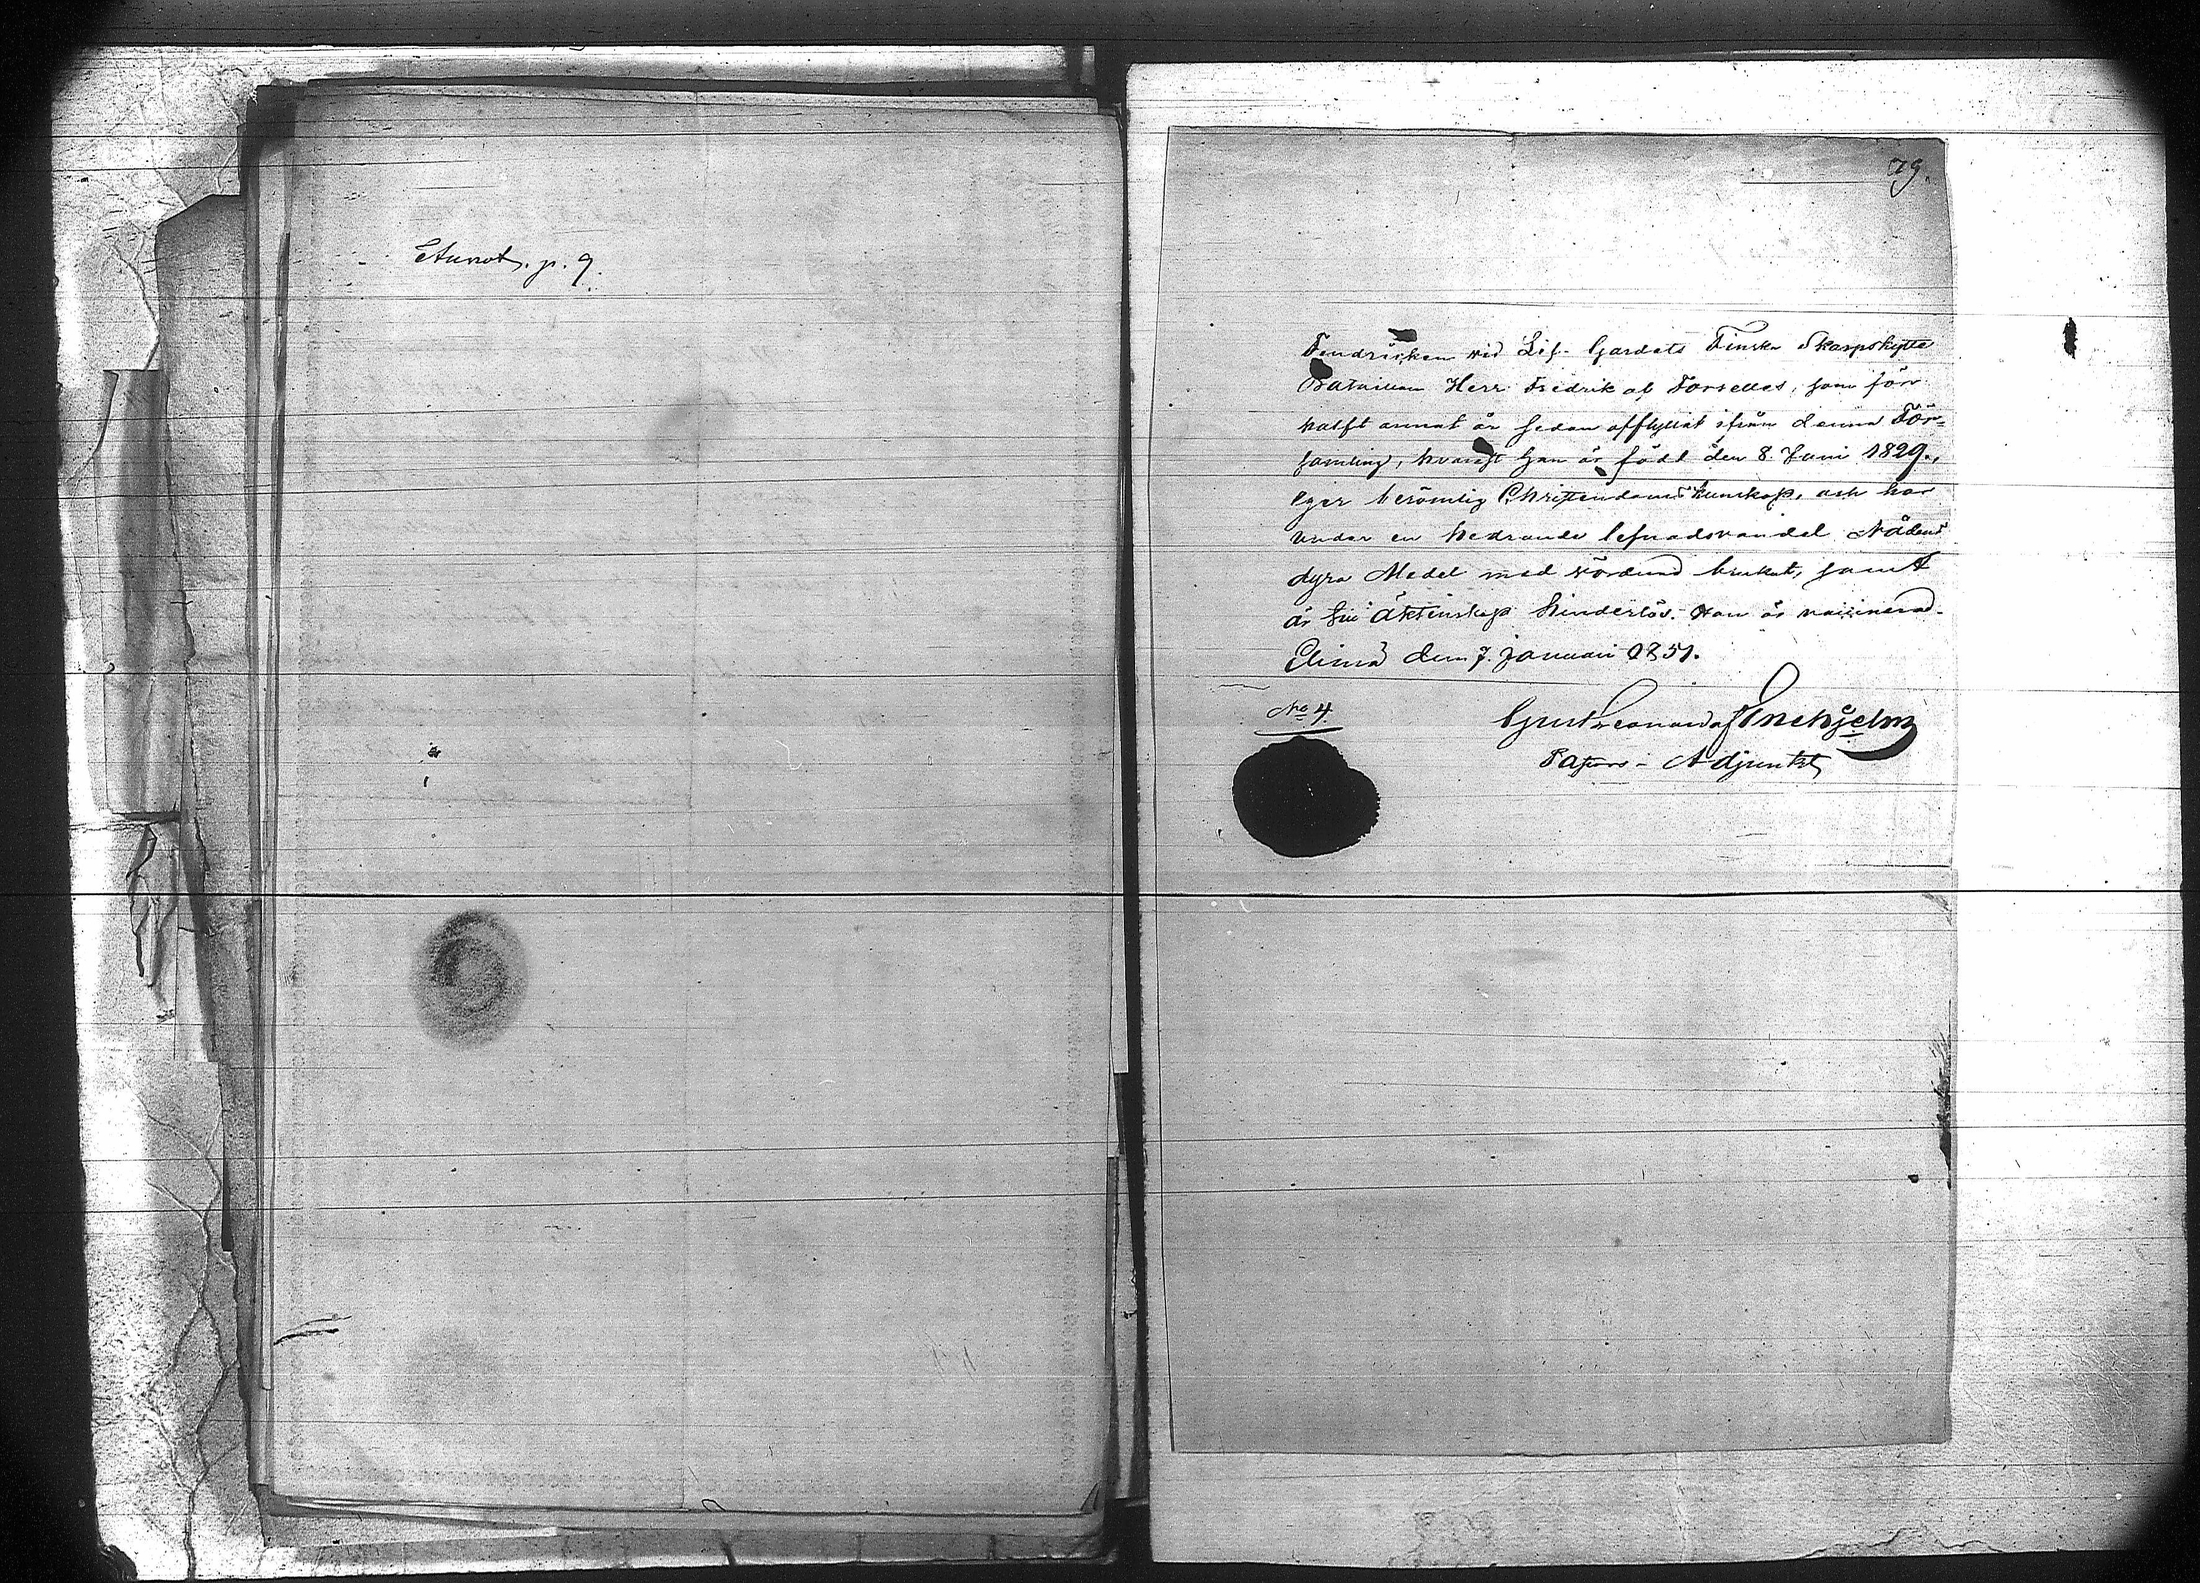 Annot. p. 9.
79.
Fendricken vid Lif-Gardets Finska Skarpskytte
Bataillon Herr Fredrik af Forselles, som för
halft annat år sedan afflyttat ifrån denna För-
samling, hvarest han är född den 8. Juni 1829.,
eger berömlig Christendoms kunskap, och har
under en hedrande lefnadsvandel Nådens
dyra Medel med vördnad brukat, samt
är till Äktenskap hinderlös. Han är vaccinerad.
Elimä den 7. Januari 1851.
No 4
Gust. Leonard Af Enehjelm
Pastors-Adjunkt